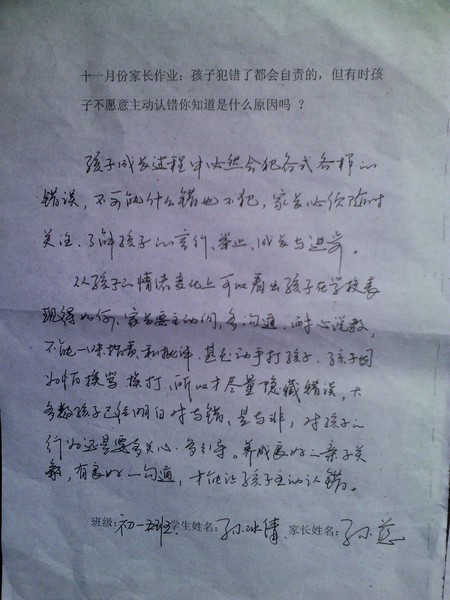 十一月份家长作业：孩子犯错了都会自责的，但有时孩
子不愿意主动认错你知道是什么原因吗 ？
孩子成长过程中必然会犯各式各样的
错误，不可能什么错也不犯，家长必须随时
关注、了解孩子的言行、举止、成长与进步。
从孩子的情绪变化上可以看出孩子在学校表
现得如何，家长要主动问，多沟通，耐心说教，
不能一味指责和批评，甚至动手打孩子，孩子因
为怕挨骂挨打，所以才尽量隐藏错误，大
多数孩子已经明白对与错、是与非，对孩子的
行为还是要多关心、多引导。养成良好的亲子关
系，有良好的沟通，才能让孩子主动认错。
班级：初一五班学生姓名：孙冰倩 家长姓名：孙蕊